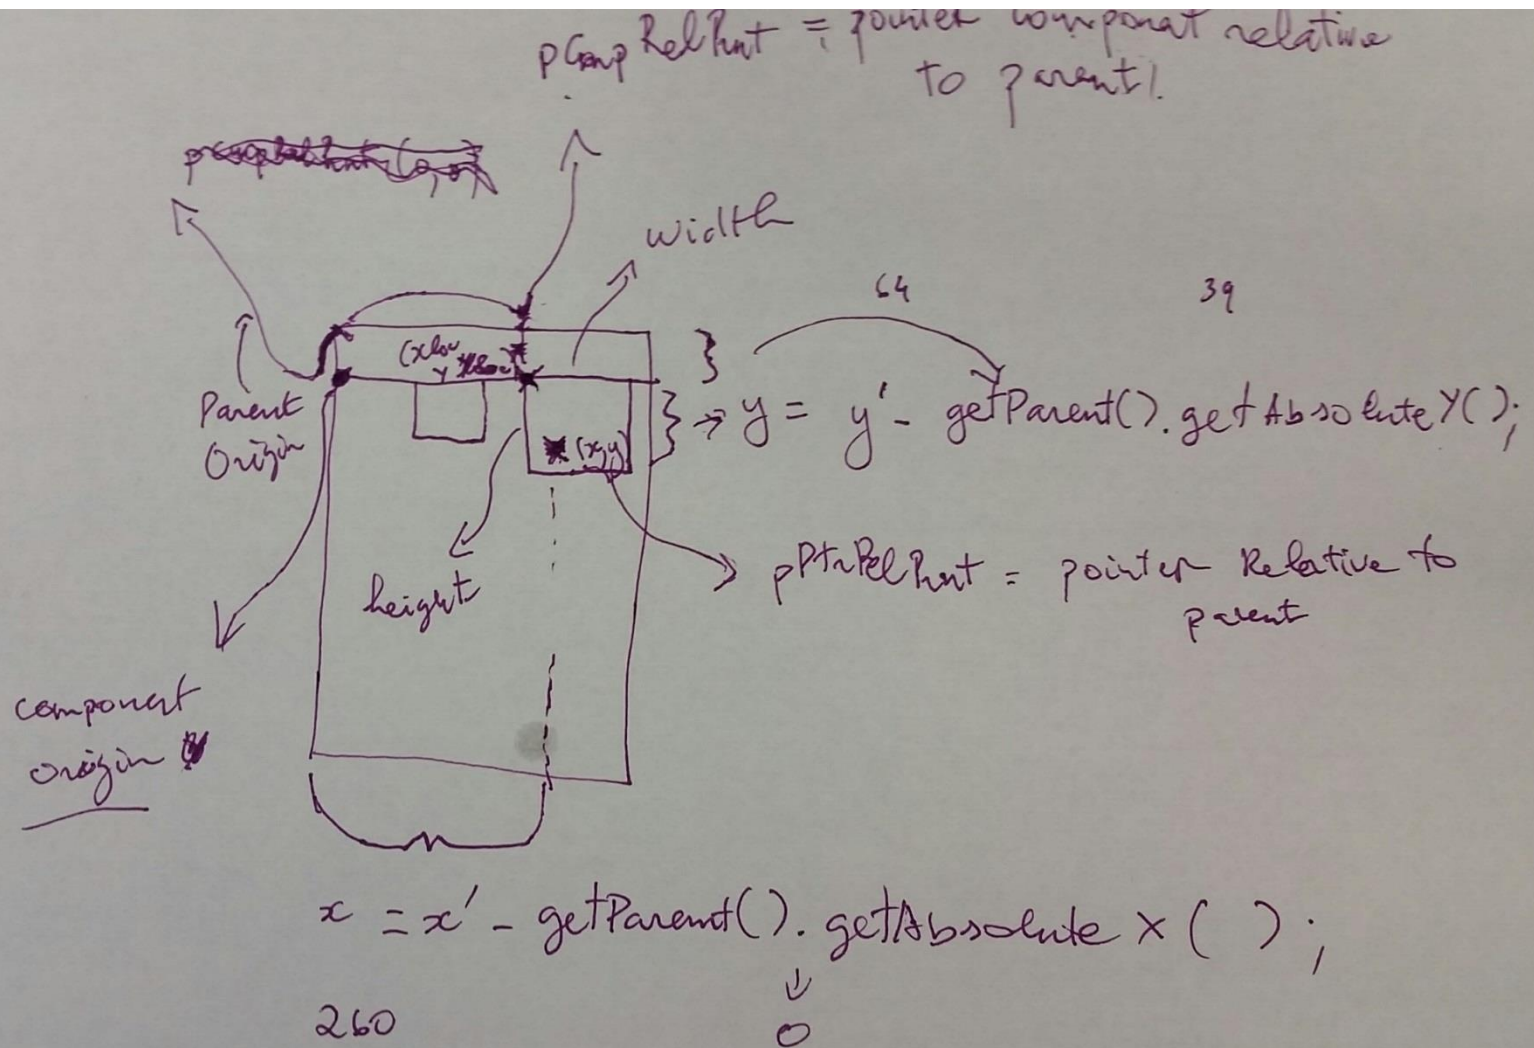 pCompRelPrnt = pointer component relative
to parent
width
64
39
(xloc
Parent
Origin
y = y' - getParent().getAbsoluteY();
(x,y)
pPtrRelPrnt = pointer Relative to
parent
height
component
origin
x = x' - getParent().getAbsoluteX( );
260
0